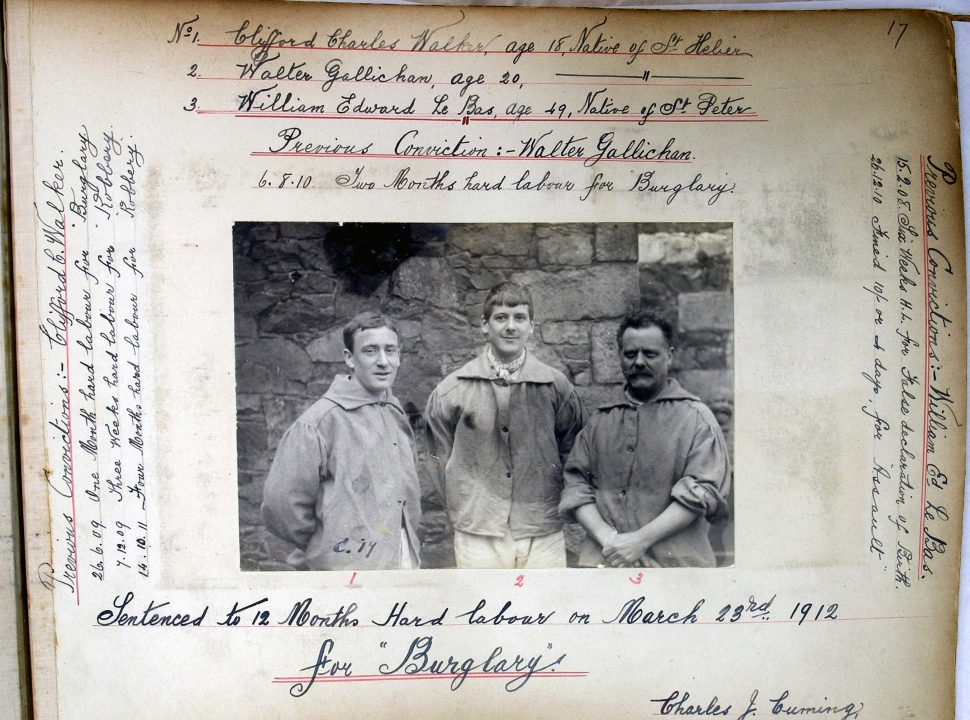 17
No 1. Clifford Charles Walker, age 18, Native of St Helier
2. Walter Gallichan, age 20, — " —
3. William Edward Le Bas, age 49, Native of St Peter
Previous Conviction :- Walter Gallichan.
6.8.10. Two Months hard labour for "Burglary".
Previous Convictions :- Clifford C. Walker.
26.6.09 One Month hard labour for "Burglary
7.12.09 Three Weeks hard labour for "Robbery.
14.10.11 Four Months hard labour for Robbery.
Previous Convictions :- William Ed Le Bas.
15.2.08. Six Weeks H.L. for False declaration of Birth.
26.12.10 Fined 10/- or 4 days, for "Assault"
C. 17
1 2 3
Sentenced to 12 Months Hard labour on March 23rd. 1912
for "Burglary".
Charles J. Cuming,